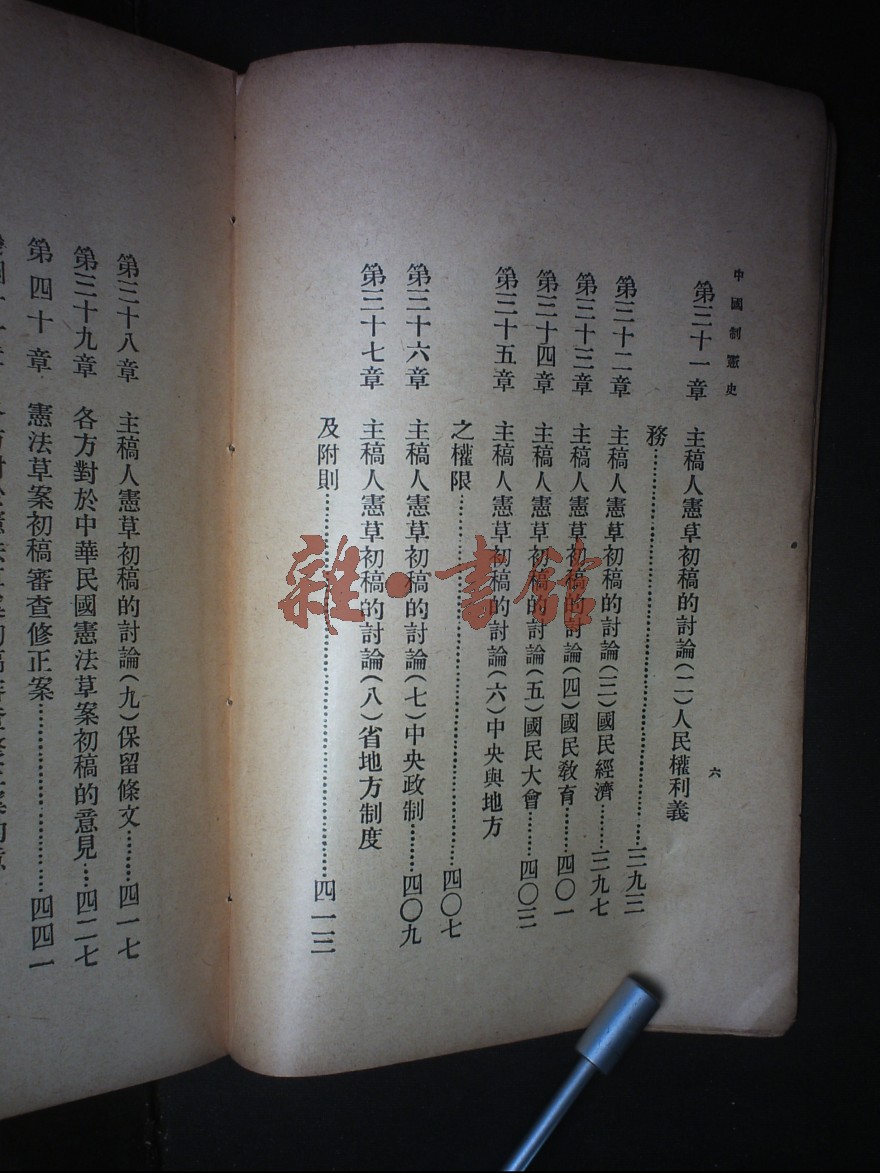 中國制憲史
六
第三十一章　主稿人憲草初稿的討論(二)人民權利義
務……三九三
第三十二章　主稿人憲草初稿的討論(三)國民經濟……三九七
第三十三章　主稿人憲草初稿的討論(四)國民教育……四〇一
第三十四章　主稿人憲草初稿的討論(五)國民大會……四〇三
第三十五章　主稿人憲草初稿的討論(六)中央與地方
之權限……四〇七
第三十六章　主稿人憲草初稿的討論(七)中央政制……四〇九
第三十七章　主稿人憲草初稿的討論(八)省地方制度
及附則……四一三
第三十八章　主稿人憲草初稿的討論(九)保留條文……四一七
第三十九章　各方對於中華民國憲法草案初稿的意見…四二七
第四十章　憲法草案初稿審查修正案……四四一
雜·書館